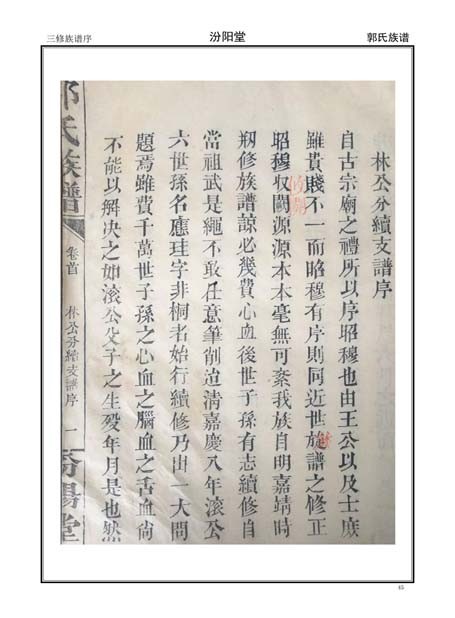 三修族谱序
汾阳堂
郭氏族谱
林公分續支譜序
自古宗廟之禮所以序昭穆也由王公以及士庶
雖貴賤不一而昭穆有序則同近世族譜之修正
昭穆収關源源本本毫無可紊我族自明嘉靖時
剏修族譜諒必幾費心血後世子孫有志續修自
當祖武是繩不敢任意筆削迨淸嘉慶八年滚公
六世孫名應珪字非桐者始行續修乃出一大問
題焉雖費千萬世子孫之心血之腦血之舌血尙
不能以解决之如滚公父子之生殁年月是也然
氏族譜
卷首
林公分續支譜序
一
陽堂
45